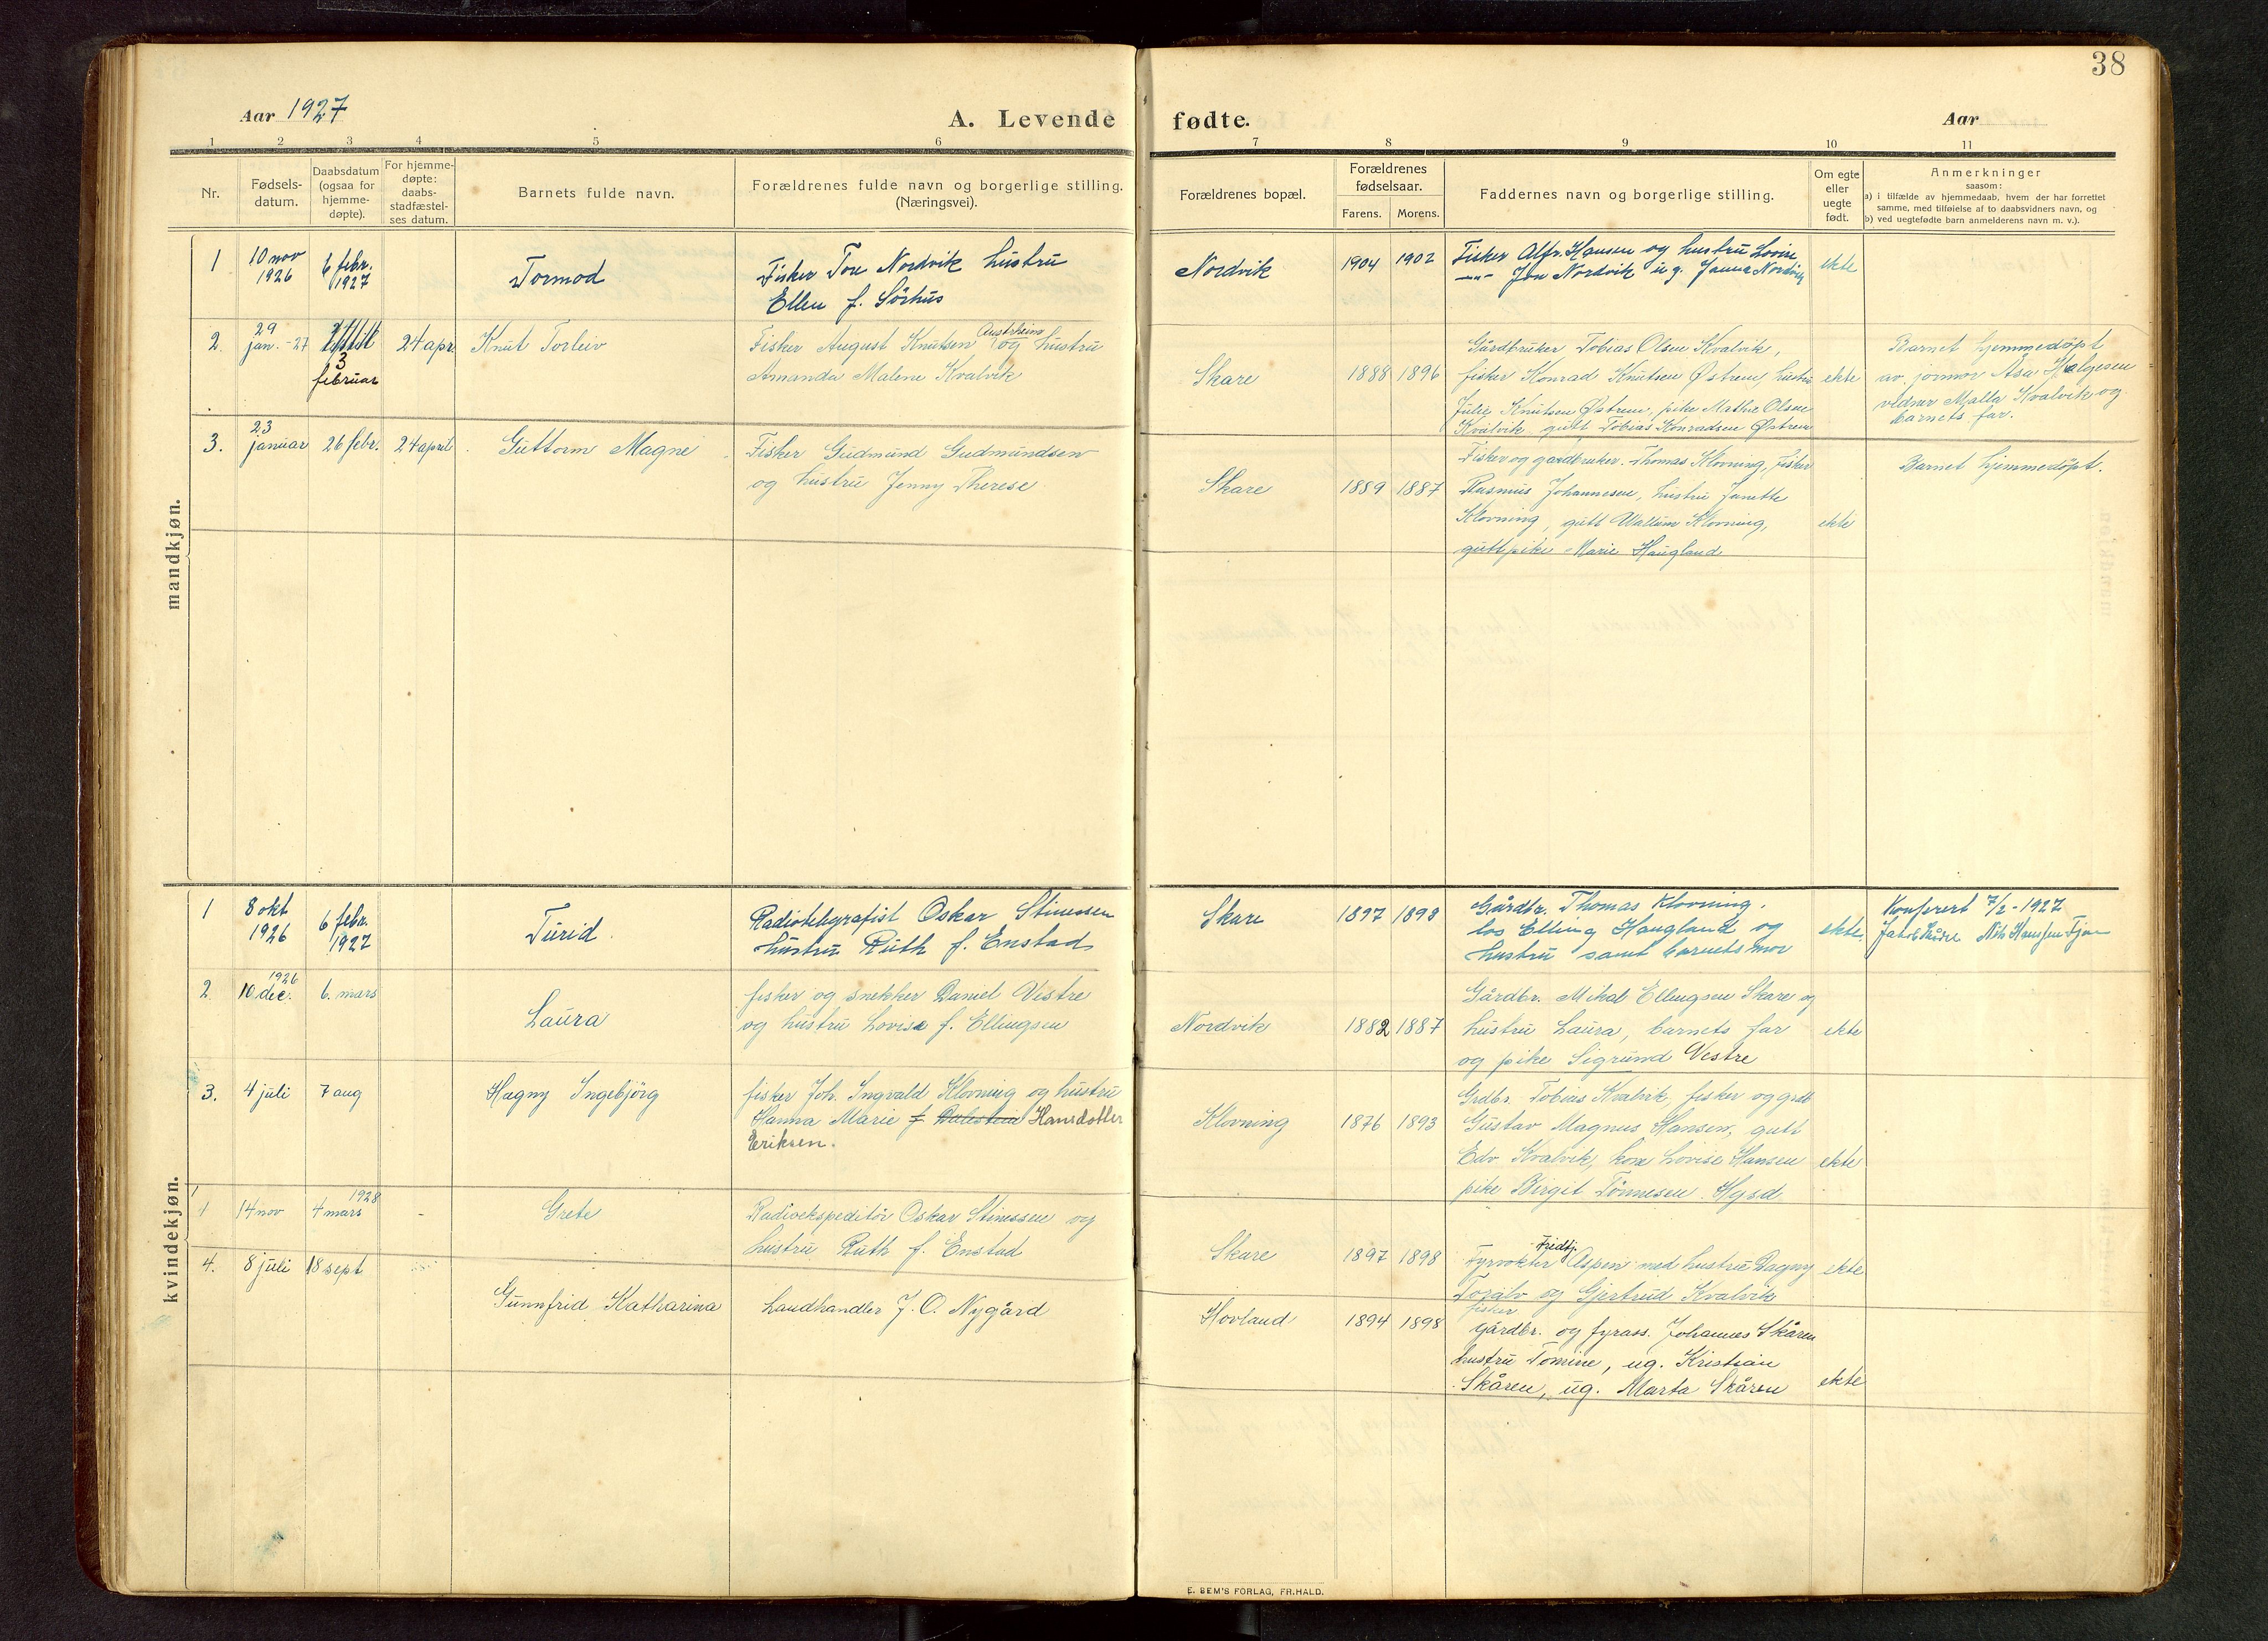 38
Aar 1927
A. Levende fødte.
Aar
1 2 3 4 5 6 7 8 9 10 11
Nr.
Fødsels-
datum.
Daabsdatum
(ogsaa for
hjemme-
døpte).
For hjemme-
døpte:
daabs-
stadfæstel-
ses datum.
Barnets fulde navn.
Forældrenes fulde navn og borgerlige stilling.
(Næringsvei).
Forældrenes bopæl.
Forældrenes
fødselsaar.
Farens. Morens.
Faddernes navn og borgerlige stilling.
Om egte
eller
uegte
født.
Anmerkninger
saasom:
a) i tilfælde av hjemmedaab, hvem der har forrettet
samme, med tilføielse af to daabsvidners navn, og
b) ved uegtefødte barn anmelderens navn m. v.).
mandkjøn.
1
10 nov
1926
6 febr.
1927
Tormod
Fisker Tore Nordvik hustru
Ellen f. Sörhus
Nordvik
1904 1902
Fisker Alfr. Hansen og hustru Lovise
-"- Jon Nordvik ug. Janna Nordvik
ekte
2.
29
jan. -27
3
februar
24 apr.
Knut Torleiv
Austrheim
Fisker August Knutsen og hustru
Amanda Malene Kvalvik
Skare
1888 1896
Gårdbruker Tobias Olsen Kvalvik,
fisker Konrad Knutsen Østrem, hustru
Julie Knutsen Østrem, pike Mathie Olsen
Kvalvik gutt Tobias Konradsen Østrem
ekte
Barnet hjemmedöpt
av jormor Åsa Helgesen
vidner Malla Kvalvik og
barnets far.
3.
23
januar
26 febr.
24 april
Guttorm Magne
Fisker Gudmund Gudmundsen
og hustru Jenny Therese
Skare
1889 1887
Fisker og gardbruker Thomas Klovning, fisker
Rasmus Johannesen, hustru Janette
Klovning, gutt Wallum Klovning,
gutt pike Marie Haugland
ekte
Barnet hjemmedöpt.
kvindekjøn.
1
8 okt
1926
6 febr.
1927
Turid
Radiotelegrafist Oskar Stinessen
hustru Ruth f. Enstad
Skare
1897 1898
Gårdbr. Thomas Klovning.
los Elling Haugland og
hustru samt barnets mor
ekte
Konferert 7/2 - 1927
2.
1926
10 dec.
6. mars
Laura
fisker og snekker Daniel Vestre
og hustru Lovise f. Ellingsen
Nordvik
1882 1887
Gårdbr. Mikal Ellingsen Skare og
hustru Laura, barnets far
og pike Sigrund Vestre
ekte
3.
4 juli
7 aug
Hagny Ingebjörg
fisker Joh. Ingvald Klovning og hustru
Hanna Marie f. Hansdotter
Eriksen.
Klovning
1876 1893
Grdbr. Tobias Kvalvik, fisker og grdb
Gustav Magnus Hansen, gutt
Edv Kvalvik, kone Lovise Hansen
pike Birgit Tönnesen Hgsd
ekte
1
14 nov
1928
4 mars
-
Grete
Radioekspeditör Oskar Stinessen og
hustru Ruth f. Enstad
Skare
1897 1898
Fridtj.
Fyrvokter Aspen med hustru Dagny
Toralv og Gjertrud Kvalvik
ekte
4.
8 juli
18 sept
Gunnfrid Katharina
Landhandler J. O. Nygård
Hovland
1894 1898
fisker
gårdbr. og fyrass. Johannes Skåren
hustru Tomine, ug. Kristian
Skåren, ug. Marta Skåren
ekte
E. SEM'S FORLAG, FR.HALD.